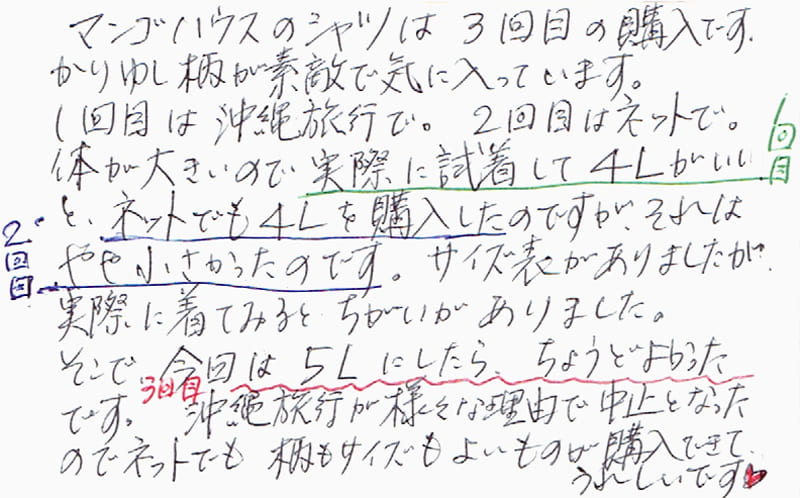 マンゴハウスのシャツは3回目の購入です.
かりゆし柄が素敵で気に入っています。
1回目は沖縄旅行で。2回目はネットで。
体が大きいので実際に試着して4Lがいい
1回目
と、ネットでも4Lを購入したのですが、それは
2回目
やや小さかったのです。サイズ表がありましたが、
実際に着てみるとちがいがありました。
そこで今回は5Lにしたら、ちょうどよかった
3回目
です。沖縄旅行が様々な理由で中止となった
のでネットでも柄もサイズもよいものが購入できて、
うれしいです♥